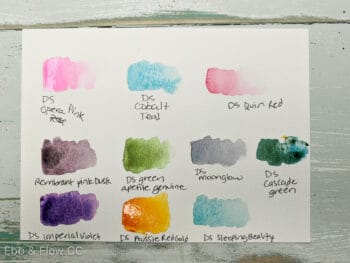 DS
Opera Pink
DS
Cobalt
Teal
DS Quin Red
Rembrant Pink Dusk
DS green
apetite genuine
DS
moonglow
DS
Cascade
green
DS imperial violet
DS Aussie Red Gold
DS Sleeping Beauty
Ebb & Flow CC